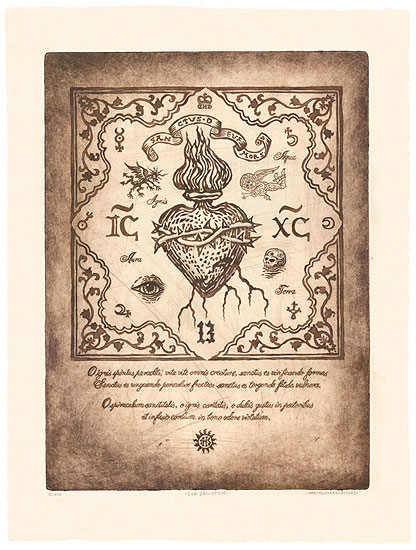 IC XC
Ignis Aqua
Aura Terra
13
O ignis spiritus paracliti, vita vite omnis creature, sanctus es vivificando formas
Sanctus es unguendo periculose fractos sanctus es tergendo fetida vulnera.
O spiraculum sanctitatis, o ignis caritatis, o dulcis gustus in pectoribus
et infusio cordium in bono odore virtutum.
IHS